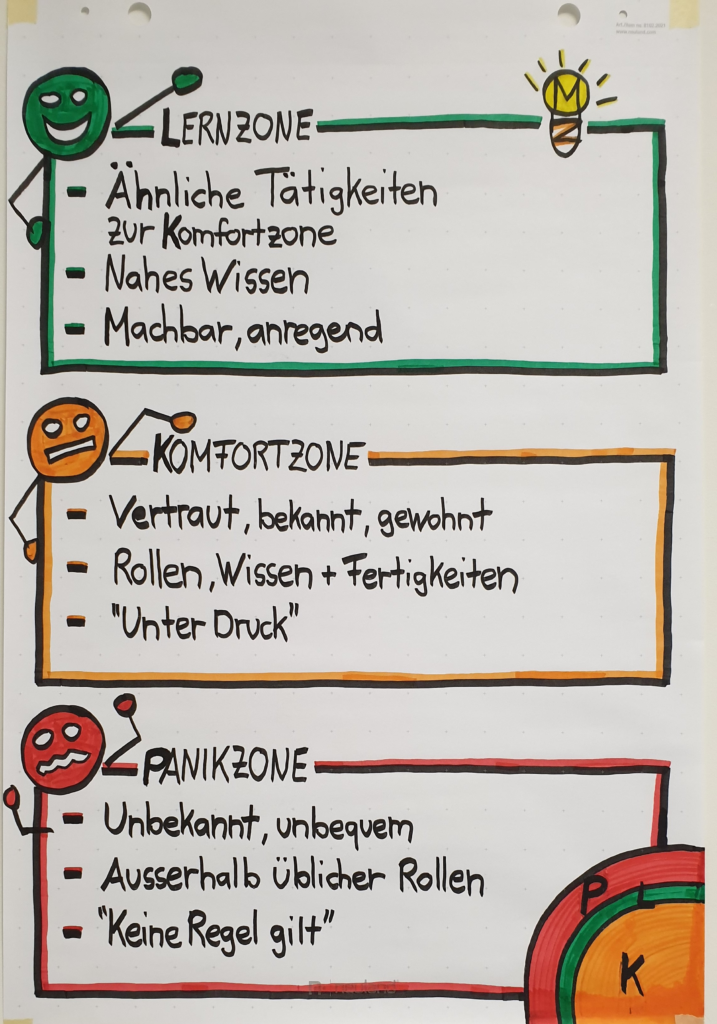 M
LERNZONE
- Ähnliche Tätigkeiten
zur Komfortzone
- Nahes Wissen
- Machbar, anregend
KOMFORTZONE
- Vertraut, bekannt, gewohnt
- Rollen, Wissen + Fertigkeiten
- "Unter Druck"
PANIKZONE
- Unbekannt, unbequem
- Ausserhalb üblicher Rollen
- "Keine Regel gilt"
P L
K